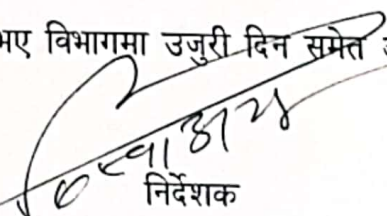 भए विभागमा उजुरी दिन समेत
निर्देशक